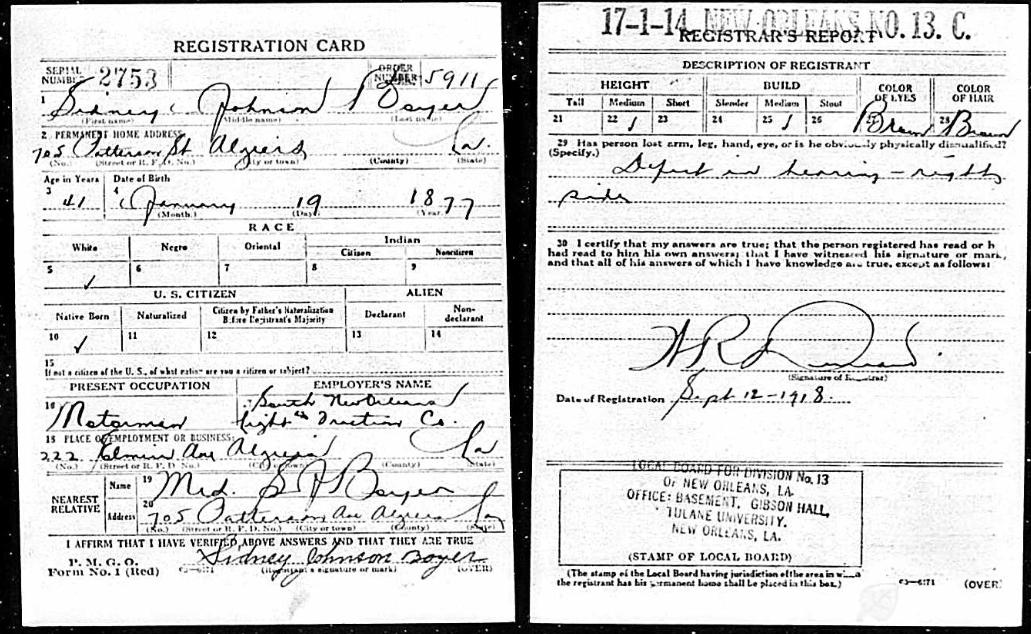 REGISTRATION CARD
SERIAL NUMBER 2753
ORDER NUMBER 5911
1 Sidney Johnson Boyer
(First name) (Middle name) (Last name)
2 PERMANENT HOME ADDRESS:
705 Patterson St Algiers La.
(No.) (Street or R. F. D. No.) (City or town) (County) (State)
Age in Years Date of Birth
3 41
4 January 19 1877
(Month.) (Day.) (Year.)
RACE
White Negro Oriental Indian
Citizen Noncitizen
5 ✓ 6 7 8 9
U. S. CITIZEN ALIEN
Native Born Naturalized Citizen by Father's Naturalization Before Registrant's Majority Declarant Non-declarant
10 ✓ 11 12 13 14
15
If not a citizen of the U. S., of what nation are you a citizen or subject?
PRESENT OCCUPATION EMPLOYER'S NAME
16 Motorman South New Orleans
Light & Traction Co.
18 PLACE OF EMPLOYMENT OR BUSINESS:
222 Elmira Ave Algiers La
(No.) (Street or R. F. D. No.) (City or town) (County) (State)
NEAREST RELATIVE
Name 19 Mrs. S J Boyer
Address 20 705 Patterson Ave Algiers La
(No.) (Street or R. F. D. No.) (City or town) (County) (State)
I AFFIRM THAT I HAVE VERIFIED ABOVE ANSWERS AND THAT THEY ARE TRUE
P. M. G. O.
Form No. 1 (Red)
Sidney Johnson Boyer
(Registrant's signature or mark) (OVER)
17-1-14 NEW ORLEANS, NO. 13. C.
REGISTRAR'S REPORT
DESCRIPTION OF REGISTRANT
HEIGHT BUILD COLOR OF EYES COLOR OF HAIR
Tall Medium Short Slender Medium Stout
21 22 / 23 24 25 / 26 Brown 28 Brown
29 Has person lost arm, leg, hand, eye, or is he obviously physically disqualified?
(Specify.)
Defect in hearing - right
side
30 I certify that my answers are true; that the person registered has read or h
had read to him his own answers; that I have witnessed his signature or mark,
and that all of his answers of which I have knowledge are true, except as follows:
(Signature of Registrar)
Date of Registration Sept 12-1918.
LOCAL BOARD FOR DIVISION No. 13
OF NEW ORLEANS, LA.
OFFICE: BASEMENT, GIBSON HALL,
TULANE UNIVERSITY,
NEW ORLEANS, LA.
(STAMP OF LOCAL BOARD)
(The stamp of the Local Board having jurisdiction of the area in
the registrant has his permanent home shall be placed in this box.)
03-6171 (OVER)